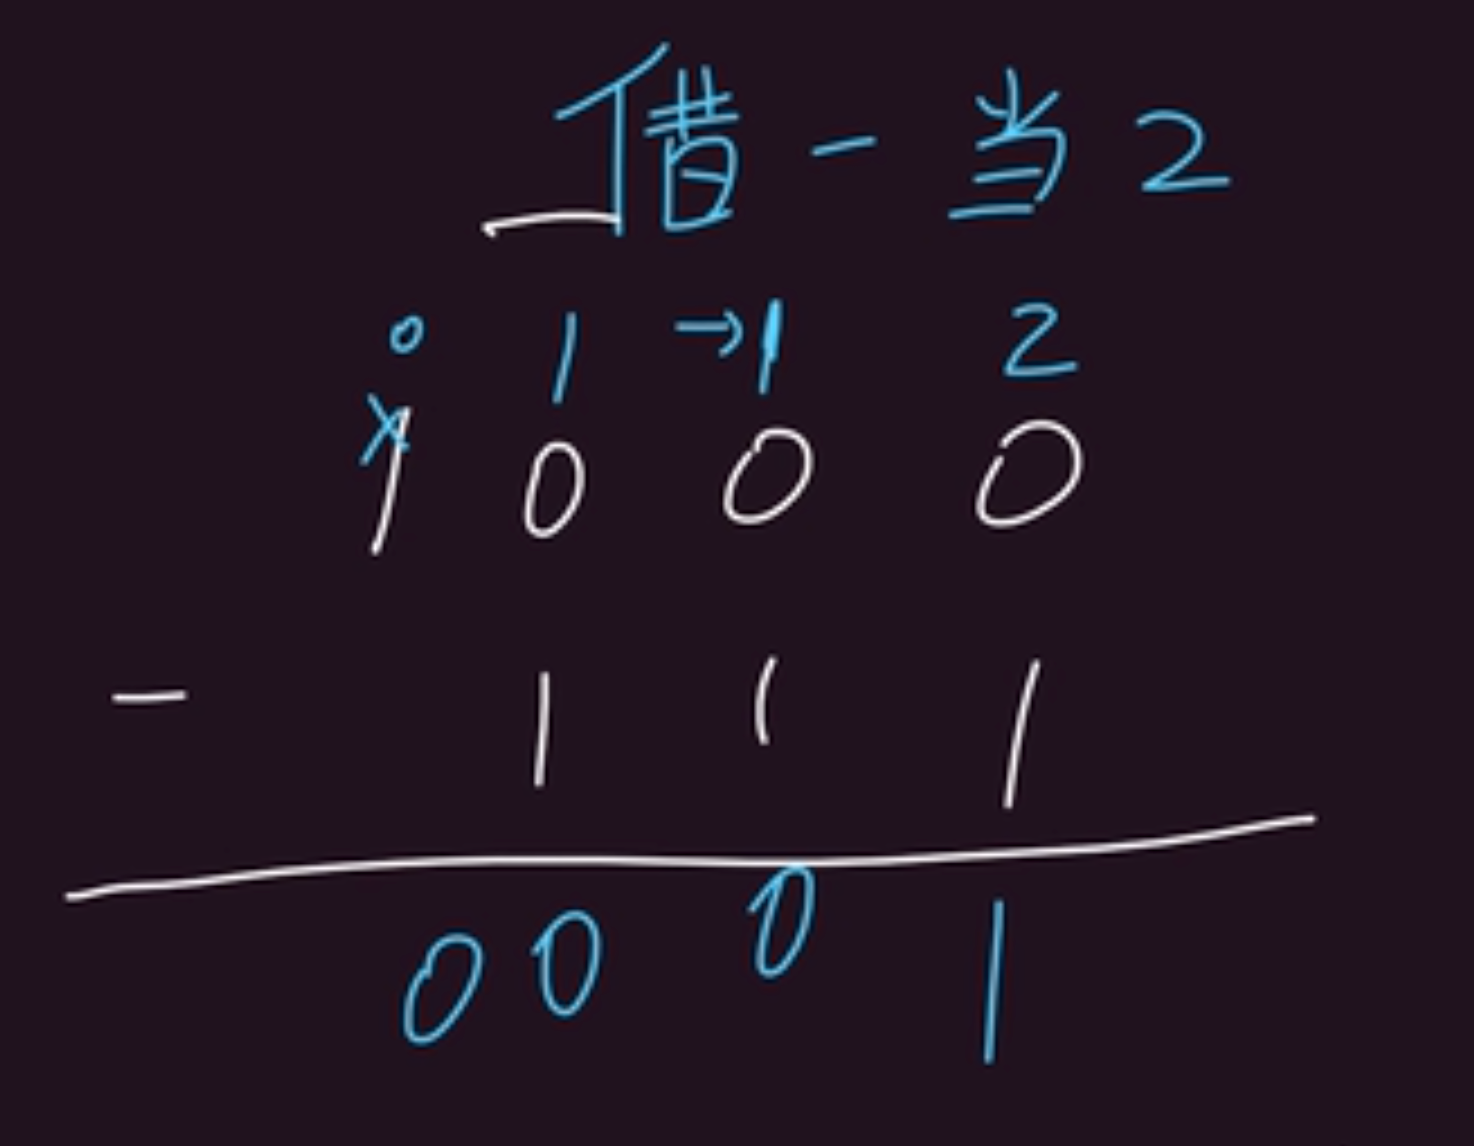 借一当2
0 1 →1 2
1 0 0 0
- 1 1 1
0 0 0 1